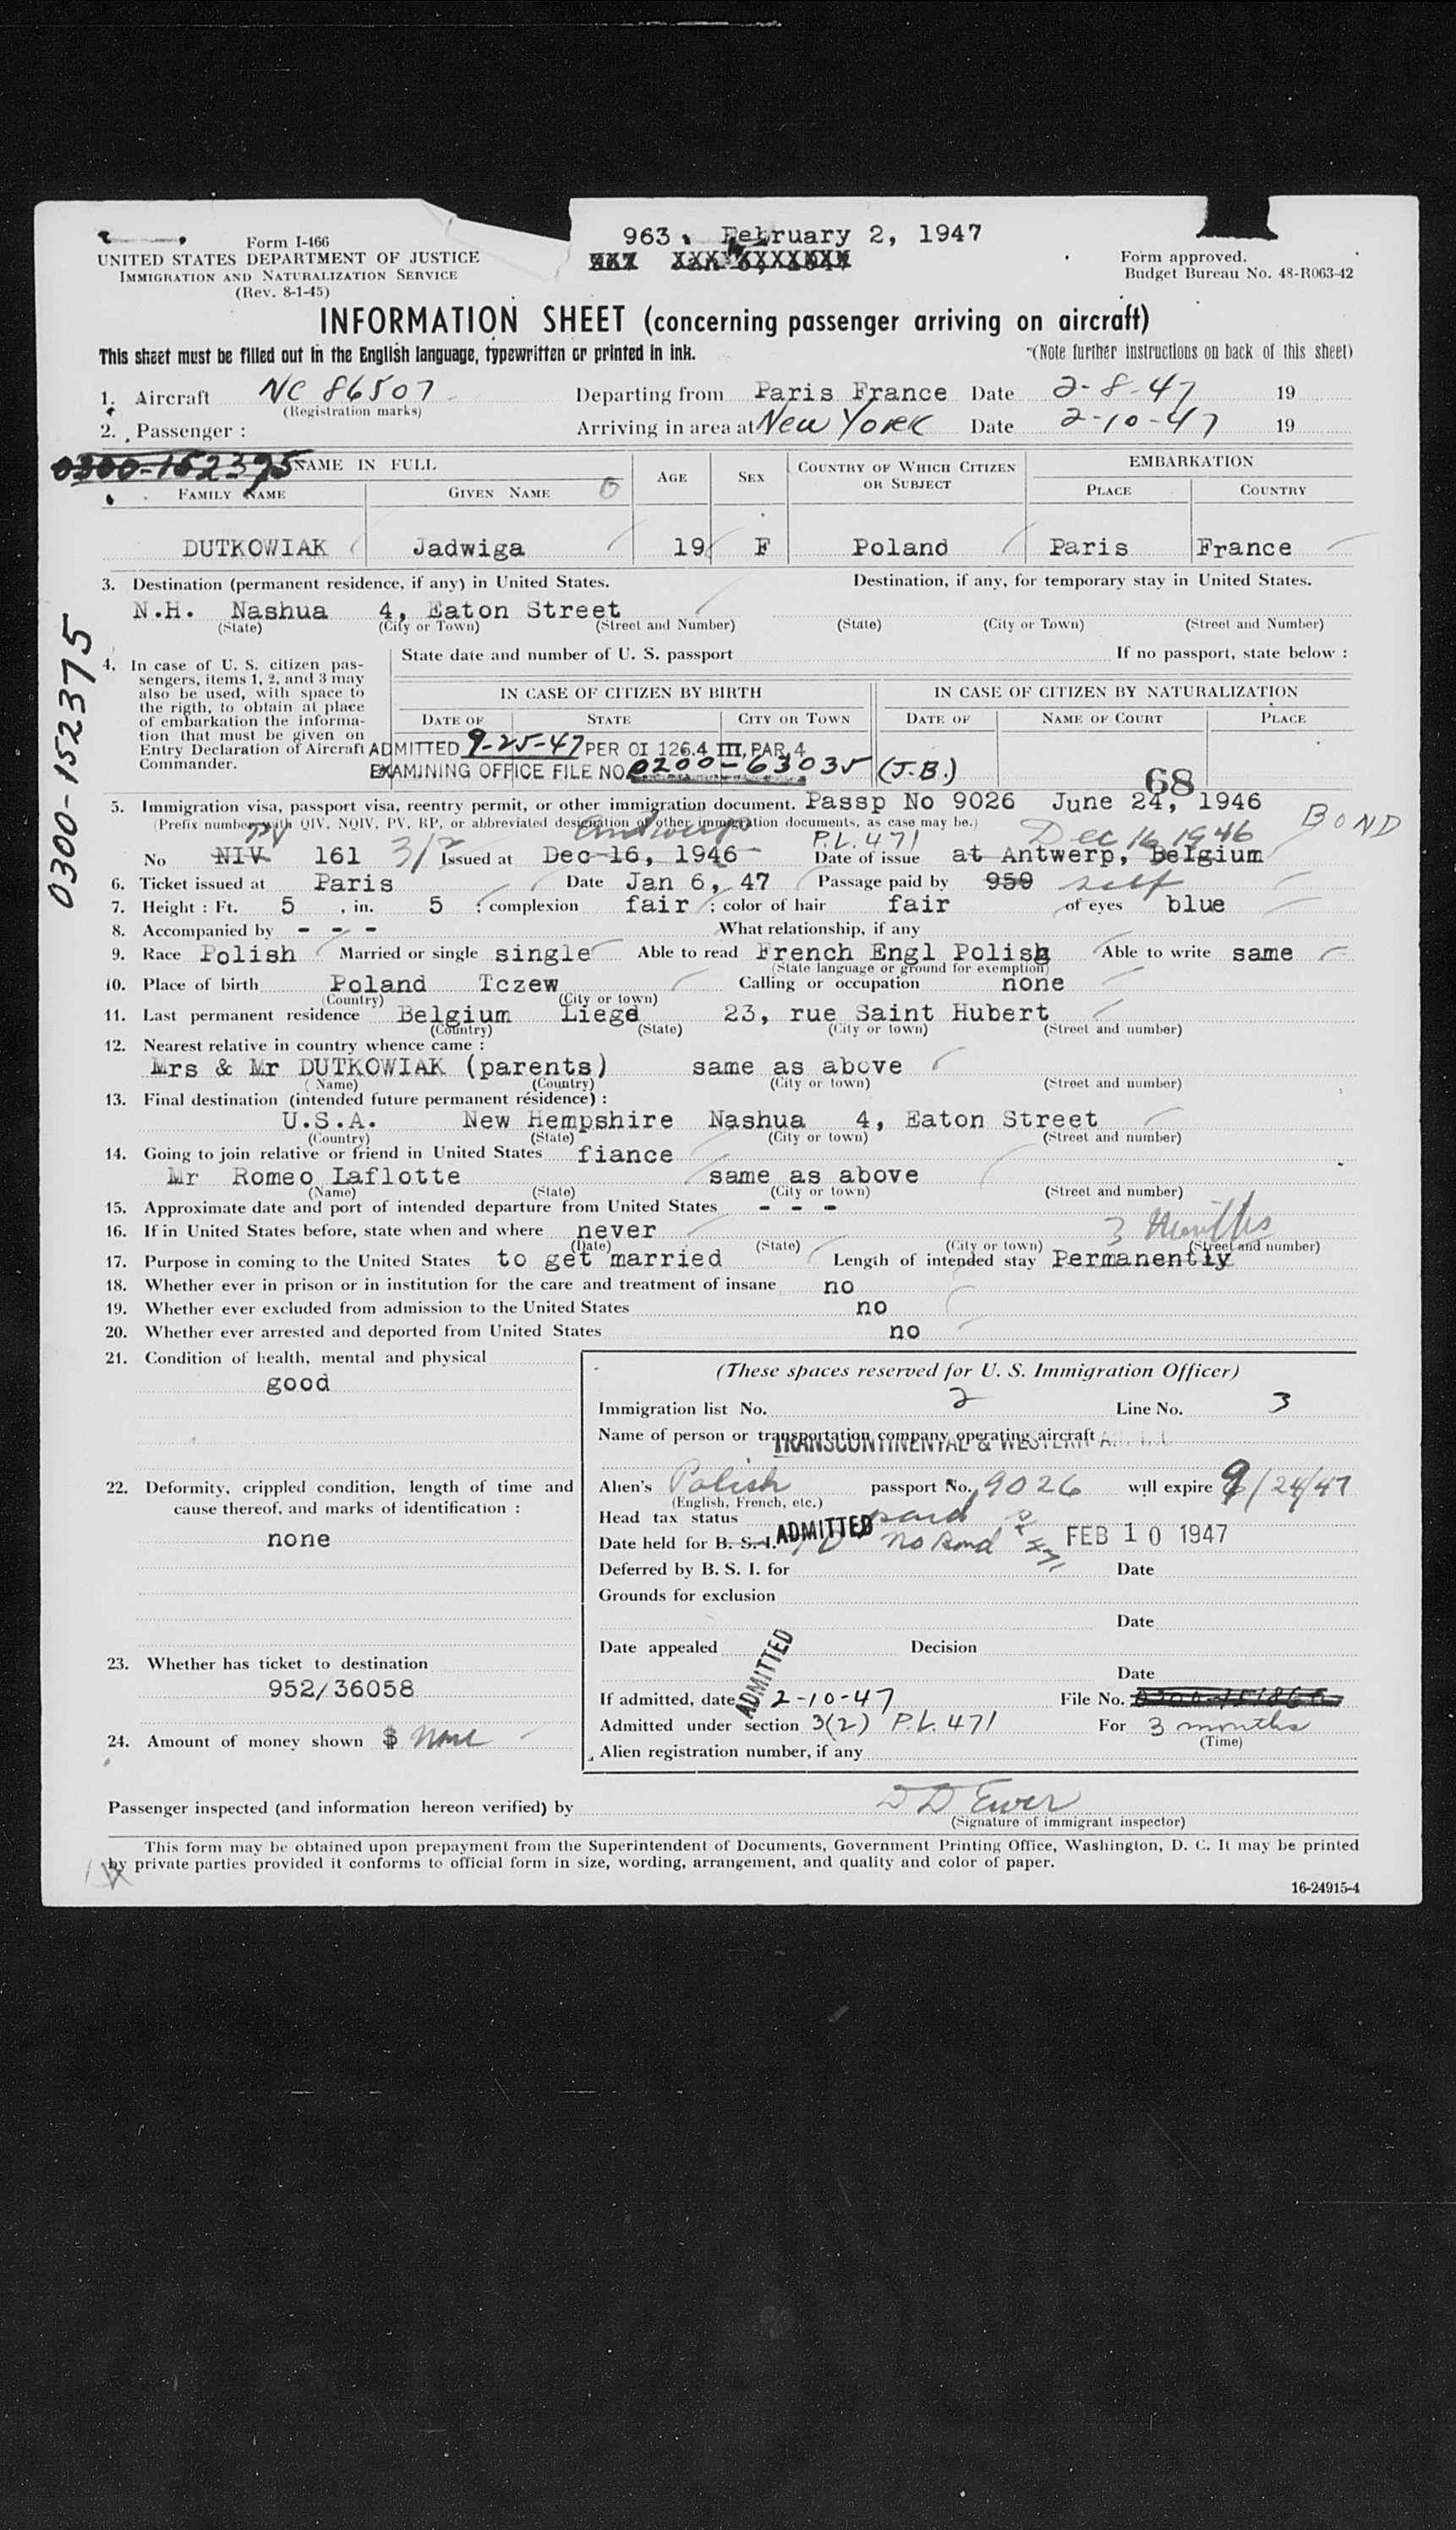 963. February 2, 1947
Form I-466
UNITED STATES DEPARTMENT OF JUSTICE
IMMIGRATION AND NATURALIZATION SERVICE
(Rev. 8-1-45)
Form approved.
Budget Bureau No. 48-R063-42
INFORMATION SHEET (concerning passenger arriving on aircraft)
This sheet must be filled out in the English language, typewritten or printed in ink. (Note further instructions on back of this sheet)
1. Aircraft NC 86507 Departing from Paris France Date 2-8-47 19
(Registration marks)
2. Passenger: Arriving in area at New York Date 2-10-47 19
0300-152375 NAME IN FULL AGE SEX COUNTRY OF WHICH CITIZEN OR SUBJECT EMBARKATION
FAMILY NAME GIVEN NAME PLACE COUNTRY
DUTKOWIAK Jadwiga 19 F Poland Paris France
3. Destination (permanent residence, if any) in United States. Destination, if any, for temporary stay in United States.
N.H. Nashua 4, Eaton Street
(State) (City or Town) (Street and Number) (State) (City or Town) (Street and Number)
0300-152375
4. In case of U. S. citizen pas-
sengers, items 1, 2, and 3 may
also be used, with space to
the rigth, to obtain at place
of embarkation the informa-
tion that must be given on
Entry Declaration of Aircraft
Commander.
State date and number of U. S. passport If no passport, state below:
IN CASE OF CITIZEN BY BIRTH IN CASE OF CITIZEN BY NATURALIZATION
DATE OF STATE CITY OR TOWN DATE OF NAME OF COURT PLACE
ADMITTED 9-25-47 PER OI 126.4 III, PAR. 4
EXAMINING OFFICE FILE NO. 0200-63035 (J.B.)
68
5. Immigration visa, passport visa, reentry permit, or other immigration document. Passp No 9026 June 24, 1946
(Prefix number with QIV, NQIV, PV, RP, or abbreviated designation of other immigration documents, as case may be.)
Antwerp P.L. 471 Dec 16, 1946 BOND
No NIV PV 161 3/2 Issued at Dec 16, 1946 Date of issue at Antwerp, Belgium
6. Ticket issued at Paris Date Jan 6, 47 Passage paid by 950 self
7. Height: Ft. 5, in. 5; complexion fair; color of hair fair of eyes blue
8. Accompanied by - - - What relationship, if any
9. Race Polish Married or single single Able to read French Engl Polish Able to write same
(State language or ground for exemption)
10. Place of birth Poland Tczew Calling or occupation none
(Country) (City or town)
11. Last permanent residence Belgium Liege 23, rue Saint Hubert
(Country) (State) (City or town) (Street and number)
12. Nearest relative in country whence came:
Mrs & Mr DUTKOWIAK (parents) same as above
(Name) (Country) (City or town) (Street and number)
13. Final destination (intended future permanent résidence):
U.S.A. New Hempshire Nashua 4, Eaton Street
(Country) (State) (City or town) (Street and number)
14. Going to join relative or friend in United States fiance
Mr Romeo Laflotte same as above
(Name) (State) (City or town) (Street and number)
15. Approximate date and port of intended departure from United States - - -
16. If in United States before, state when and where never
(Date) (State) (City or town) (Street and number)
3 Months
17. Purpose in coming to the United States to get married Length of intended stay Permanently
18. Whether ever in prison or in institution for the care and treatment of insane no
19. Whether ever excluded from admission to the United States no
20. Whether ever arrested and deported from United States no
21. Condition of health, mental and physical
good
22. Deformity, crippled condition, length of time and
cause thereof, and marks of identification:
none
23. Whether has ticket to destination
952/36058
24. Amount of money shown $ None
(These spaces reserved for U. S. Immigration Officer)
Immigration list No. 2 Line No. 3
Name of person or transportation company operating aircraft
TRANSCONTINENTAL & WESTERN
Alien's Polish passport No. 9026 will expire 9/24/47
(English, French, etc.)
Head tax status paid
Date held for B. S. I. ADMITTED No Bond FEB 10 1947
Deferred by B. S. I. for Date
Grounds for exclusion
Date
Date appealed Decision
Date
If admitted, date ADMITTED 2-10-47 File No.
Admitted under section 3(2) P.L. 471 For 3 months
(Time)
Alien registration number, if any
Passenger inspected (and information hereon verified) by D D Ewer
(Signature of immigrant inspector)
This form may be obtained upon prepayment from the Superintendent of Documents, Government Printing Office, Washington, D. C. It may be printed
by private parties provided it conforms to official form in size, wording, arrangement, and quality and color of paper.
16-24915-4